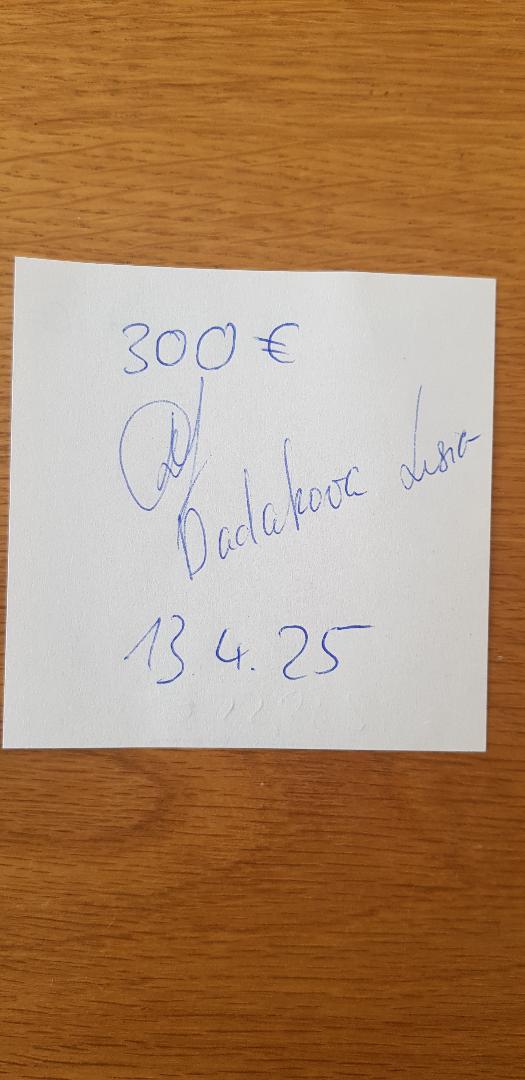 300 €
Dadakova
13 4. 25